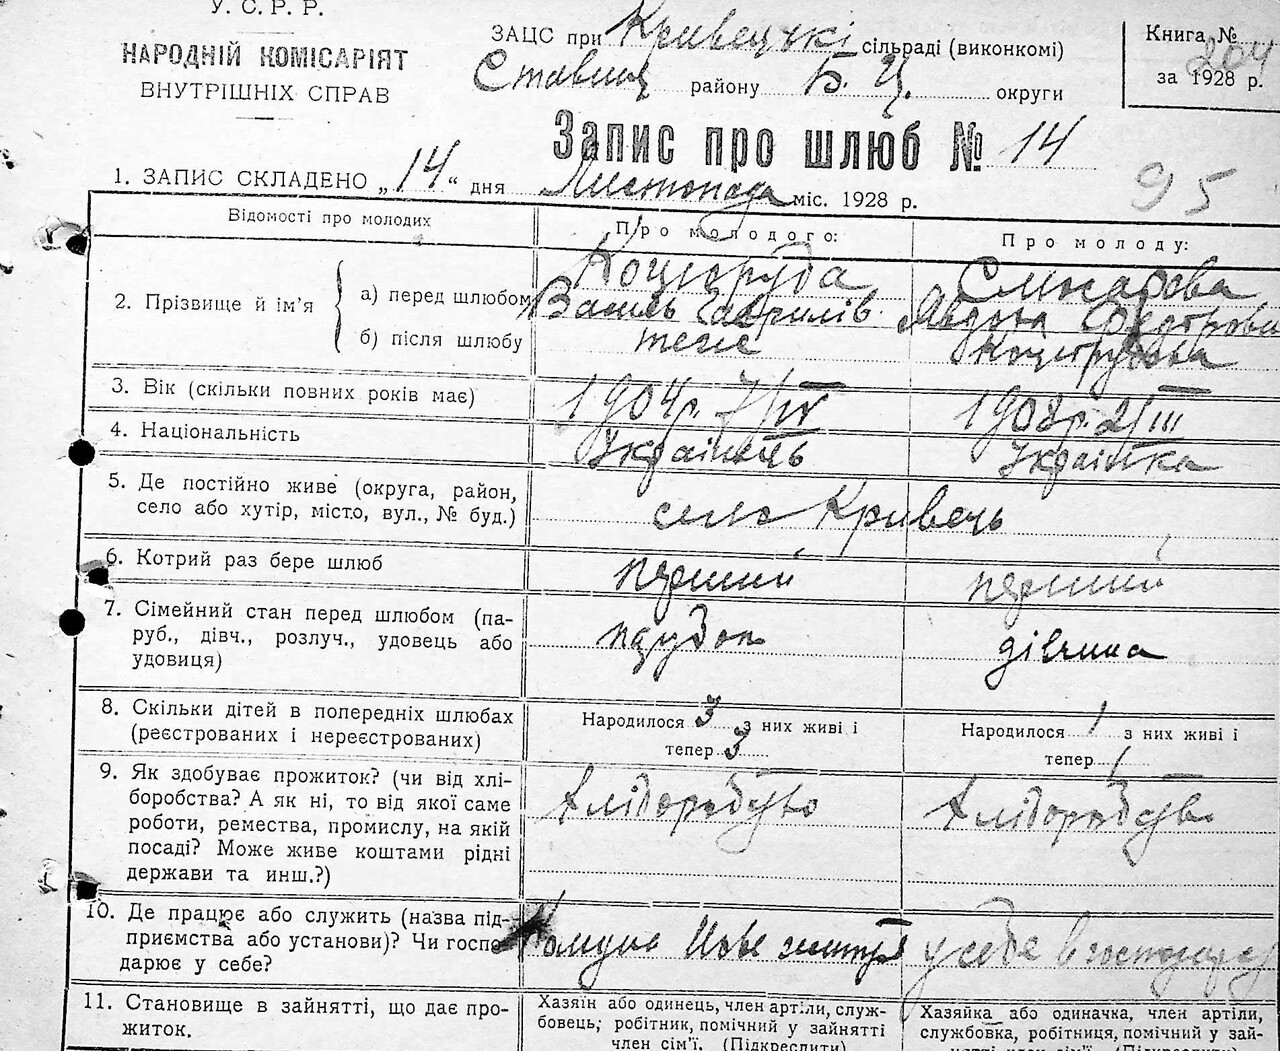 У. С. Р. Р.
НАРОДНІЙ КОМІСАРІЯТ
ВНУТРІШНІХ СПРАВ
ЗАЦС при Кривецькі сільраді (виконкомі)
Ставищ району Б. Ц. округи
Книга № 204
за 1928 р.
Запис про шлюб № 14
95
1. ЗАПИС СКЛАДЕНО „14“ дня Листопада міс. 1928 р.
Відомості про молодих Про молодого: Про молоду:
2. Прізвище й ім’я
а) перед шлюбом
б) після шлюбу
Коцюруба
Василь Гаврилів
теж
Слюсарова
Явдоха Федорова
Коцюрубова
3. Вік (скільки повних років має) 1904р. 7/IV 1908р. 2/III
4. Національність Українець Українка
5. Де постійно живе (округа, район,
село або хутір, місто, вул., № буд.) село Кривець
6. Котрий раз бере шлюб перший перший
7. Сімейний стан перед шлюбом (па-
руб., дівч., розлуч., удовець або
удовиця)
парубок дівчина
8. Скільки дітей в попередніх шлюбах
(реєстрованих і нереєстрованих)
Народилося 3 з них живі і
тепер 3
Народилося 1 з них живі і
тепер 1
9. Як здобуває прожиток? (чи від хлі-
боробства? А як ні, то від якої саме
роботи, ремества, промислу, на якій
посаді? Може живе коштами рідні
держави та инш.?)
10. Де працює або служить (назва під-
приємства або установи)? Чи госпо-
дарює у себе?
Комуна Нове життя у себе в господар
11. Становище в зайнятті, що дає про-
житок.
Хазяїн або одинець, член артіли, служ-
бовець, робітник, помічний у зайнятті
член сім’ї. (Підкреслити)
Хазяйка або одиначка, член артіли,
службовка, робітниця, помічний у зай-
нятті член сім’ї. (Підкреслити)